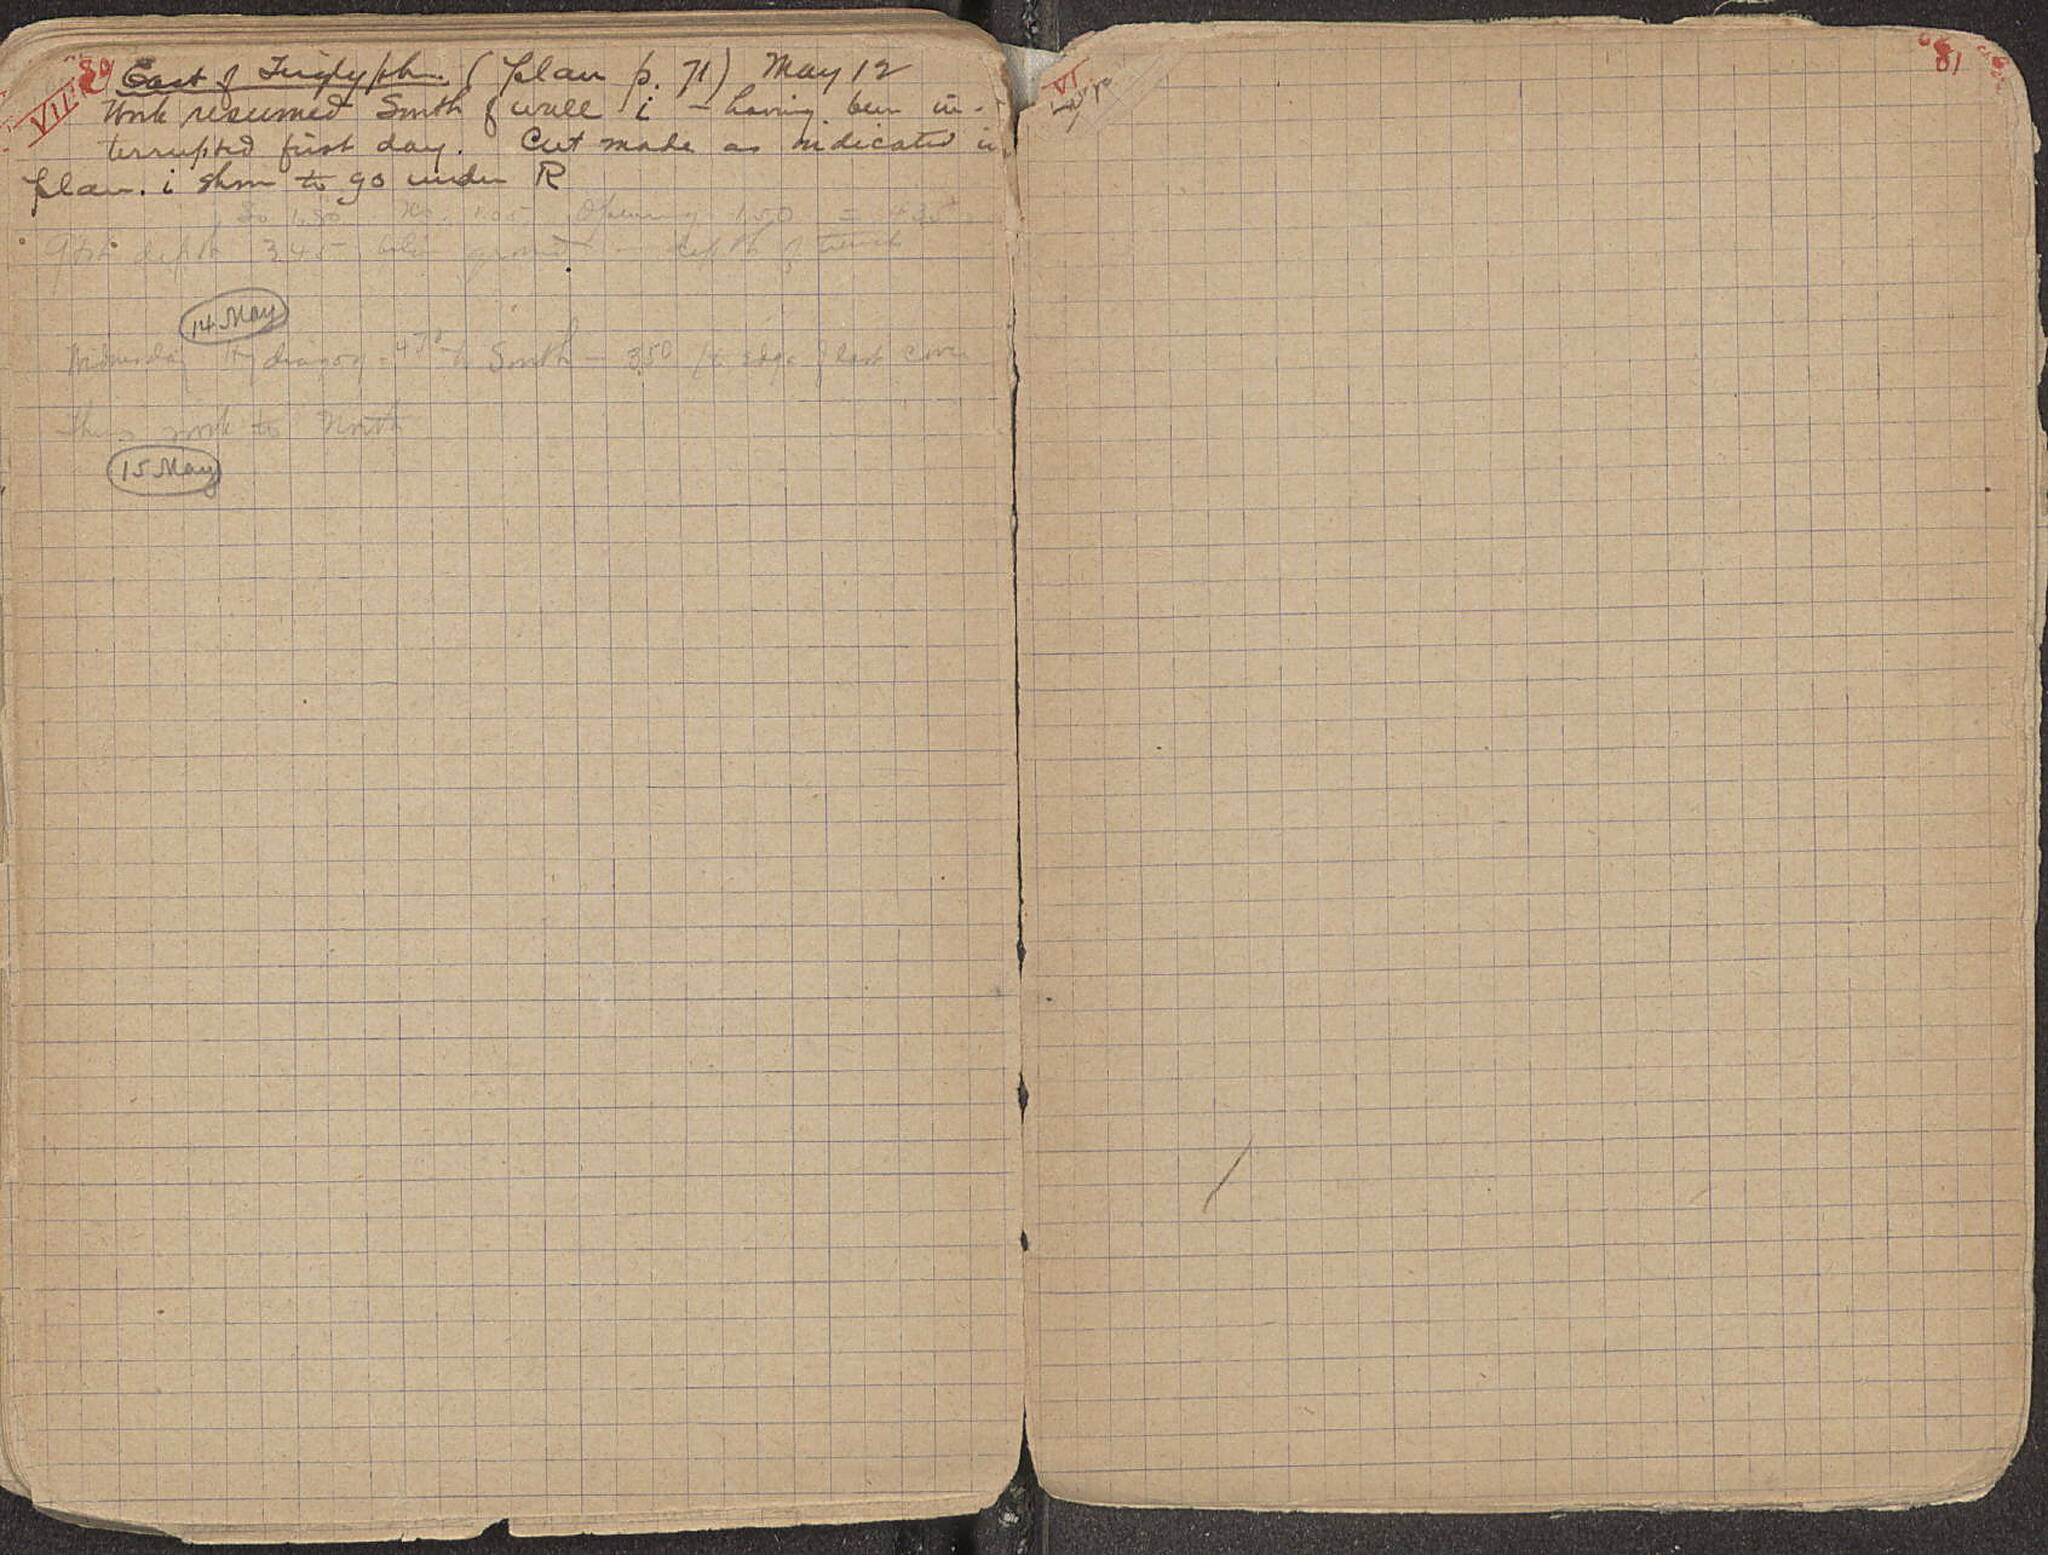 80
VII
East of Triglyphon. (plan p. 71) May 12
Work resumed South of wall i – having been in-
terrupted first day. Cut made as indicated in
plan. i shown to go under R
So 1.80 No. 1.05 Opening 1.50 = 435
depth 345 below ground – depth of trench
14 May
Wednesday = 470 to South – 350 to edge of last
Thurs work to North
15 May
VI
81